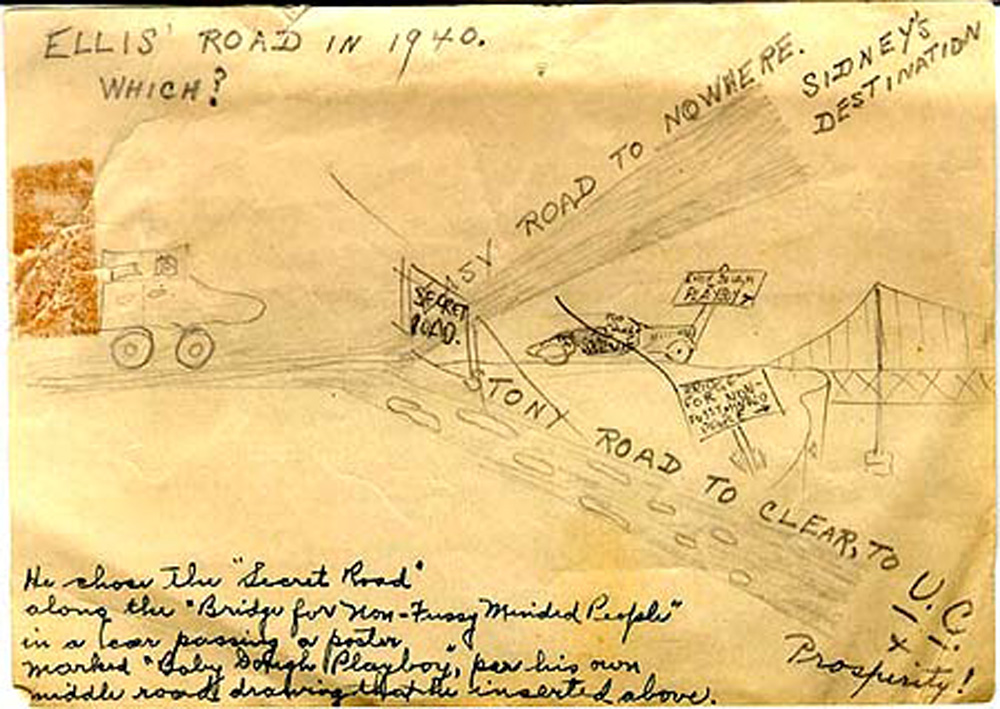 ELLIS' ROAD IN 1940.
WHICH?
SV ROAD TO NOWHERE.
SIDNEY'S
DESTINATION
SECRET
ROAD.
PLAYBOY
BRIDGE
FOR NON-
FUSSY MINDED
PEOPLE
TONY ROAD TO CLEAR, TO
U.C.
+
Prosperity!
He chose the "Secret Road"
along the "Bridge for Non-Fussy Minded People"
in a car passing a poster
marked "Baby Dough Playboy", per his own
middle road drawing that he inserted above.